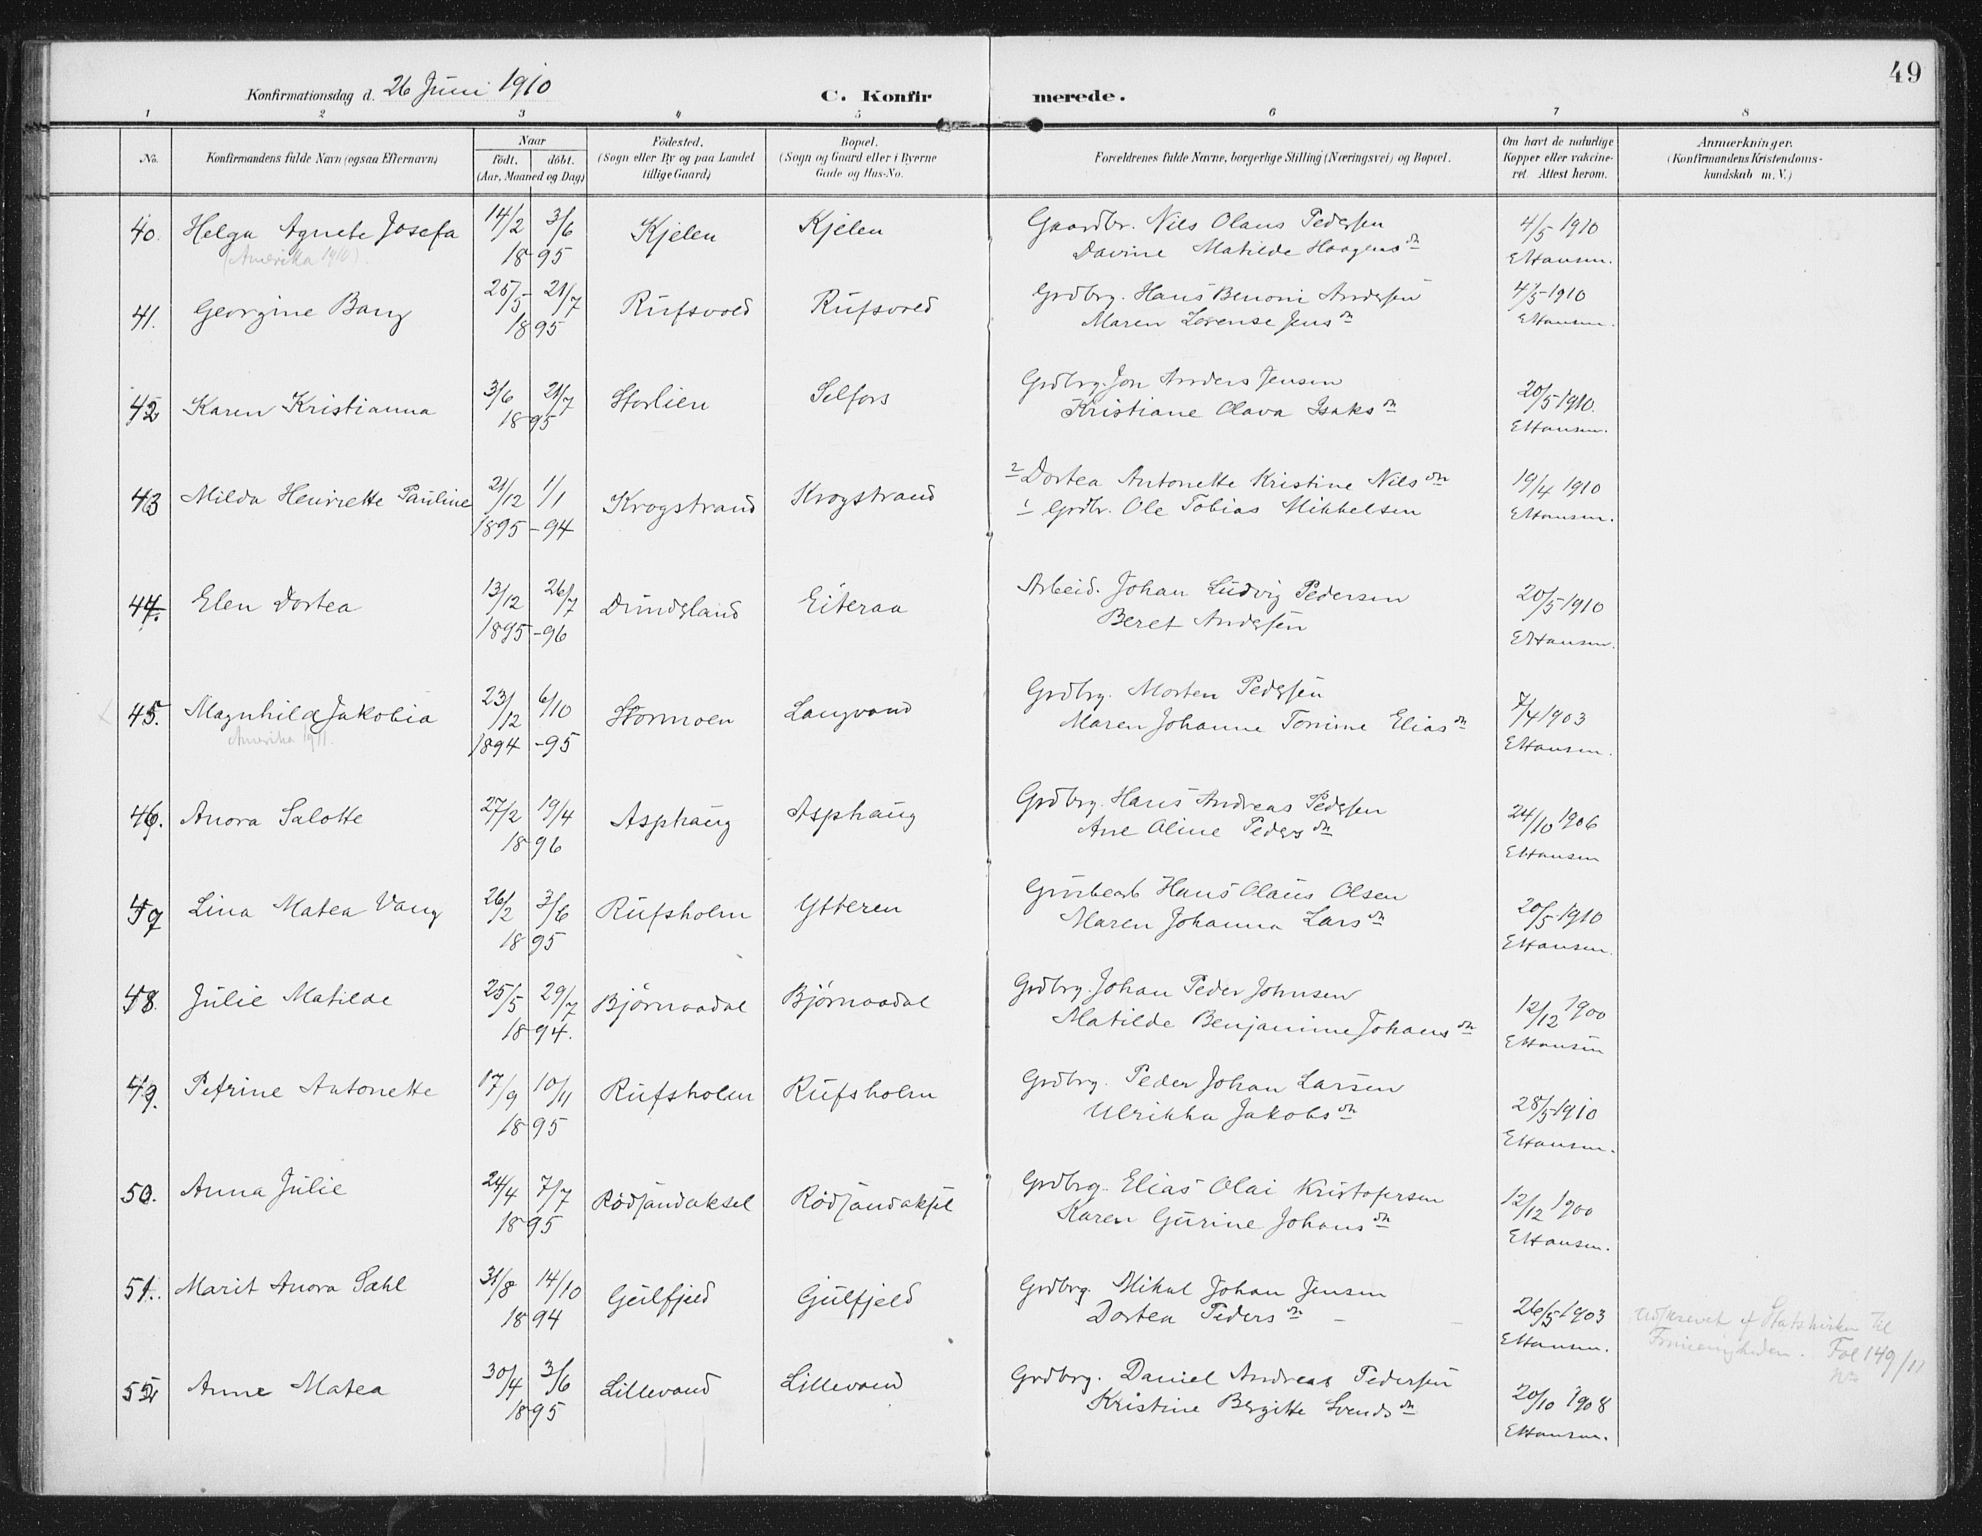 49
Konfirmationsdag d. 26 Juni 1910
C. Konfirmerede.
1 2 3 4 5 6 7 8
No.
Konfirmandens fulde Navn (ogsaa Efternavn)
Naar
født. døbt.
(Aar, Maaned og Dag)
Fødested.
(Sogn eller By og paa Landet
tillige Gaard)
Bopæl.
(Sogn og Gaard eller i Byerne
Gade og Hus-No.
Forældrenes fulde Navne, borgerlige Stilling (Næringsvei) og Bopæl.
Om havt de naturlige
Kopper eller vakcine-
ret. Attest herom.
Anmærkninger.
(Konfirmandens Kristendoms-
kundskab m. V.)
40. Helga Agnete Josefa 14/2 3/6 Kjelen Kjelen Gaardbr. Nils Olaus Pedersen 4/5 1910
(Amerika 1910). 18 95 Davine Matilde Haagensdn EHansen.
41. Georgine Bang 25/5 21/7 Rufsvold Rufsvold Grdbrg. Hans Benoni Andersen 4/5 1910
18 95 Maren Lorense Jensdn EHansen.
42 Karen Kristianna 3/6 21/7 Storlien Selfors Grdbrg. Jon Anders Jensen 20/5 1910.
18 95 Kristiane Olava Isaksdn EHansen.
43 Milda Henriette Pauline 21/12 1/1 Krogstrand Krogstrand 2 Dortea Antonette Kristine Nilsdn 19/4 1910
1895 -94 1 Grdbr. Ole Tobias Mikkelsen EHansen.
44. Elen Dortea 13/12 26/7 Dunderland Eiteraa Arbeid. Johan Ludvig Pedersen 20/5 1910
1895 -96 Beret Andersen EHansen.
45. Magnhild Jakobia 23/12 6/10 Stormoen Langvand Grdbrg. Morten Pedersen 7/4 1903
Amerika 1911. 1894 -95 Maren Johanne Tomine Eliasdn EHansen.
46. Anora Salotte 27/2 19/4 Asphaug Asphaug Grdbrg. Hans Andreas Pedersen 24/10 1906
18 96 Ane Oline Pedersdn EHansen
47 Lina Matea Vang 26/2 3/6 Rufsholm Ytteren Grubearb Hans Olaus Olsen 20/5 1910
18 95 Maren Johanna Larsdn EHansen.
48. Julie Matilde 25/5 29/7 Bjørnaadal Bjørnaadal Grdbrg. Johan Peder Johnsen 12/12 1900
18 94. Matilde Benjamine Johansdn EHansen
49. Petrine Antonette 17/9 10/11 Rufsholm Rufsholm Grdbrg. Peder Johan Larsen 28/5 1910
18 95 Ulrikka Jakobsdn EHansen.
50. Anna Julie 24/4 7/7 Rødsandaksel Rødsandaksel Grdbrg. Elias Olai Kristofersen 12/12 1900
18 95 Karen Gurine Johansdn EHansen.
51. Marit Anora Sæhl 31/8 14/10 Gulfjeld Gulfjeld Grdbrg. Mikal Johan Jensen 26/5 1903
18 94 Dortea Pedersdn EHansen.
Udskrevet af Statskirken til
Frimenigheden. Fol 149/11
52 Anne Matea 30/4 3/6 Lillevand Lillevand Grdbrg. Daniel Andreas Pedersen 20/10 1908
18 95 Kristine Bergitte Svendsdn EHansen.